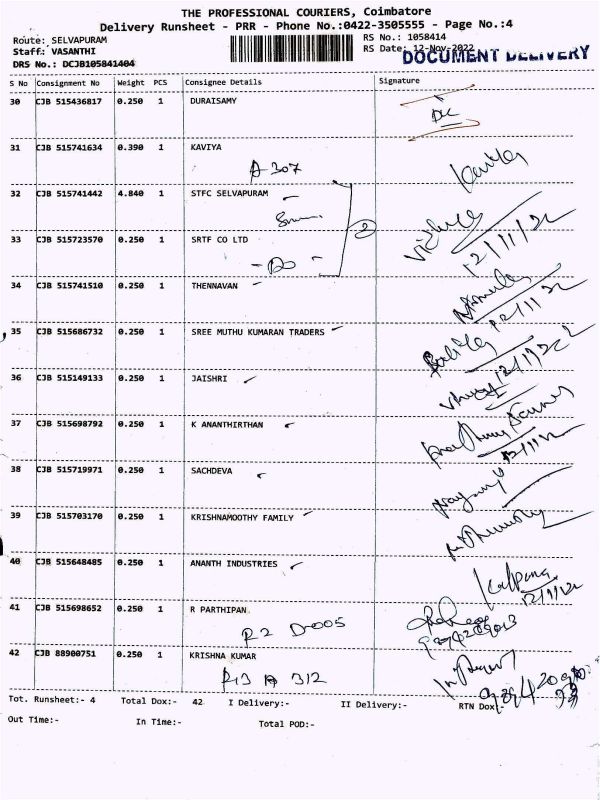 THE PROFESSIONAL COURIERS, Coimbatore
Delivery Runsheet - PRR - Phone No.:0422-3505555 - Page No.:4
Route: SELVAPURAM RS No.: 1058414
Staff: VASANTHI RS Date: 12-Nov-2022
DRS No.: DCJB105841404 DOCUMENT DELIVERY
S No Consignment No Weight PCS Consignee Details Signature
30 CJB 515436817 0.250 1 DURAISAMY
31 CJB 515741634 0.390 1 KAVIYA
A 307 Kaviya
32 CJB 515741442 4.840 1 STFC SELVAPURAM
2
33 CJB 515723570 0.250 1 SRTF CO LTD
- DO - 12/11/22
34 CJB 515741510 0.250 1 THENNAVAN
12/11/22
35 CJB 515686732 0.250 1 SREE MUTHU KUMARAN TRADERS
36 CJB 515149133 0.250 1 JAISHRI
37 CJB 515698792 0.250 1 K ANANTHIRTHAN
12/11/22
38 CJB 515719971 0.250 1 SACHDEVA
39 CJB 515703170 0.250 1 KRISHNAMOOTHY FAMILY
40 CJB 515648485 0.250 1 ANANTH INDUSTRIES
Kalpana
12/11/22
41 CJB 515698652 0.250 1 R PARTHIPAN
R2 D-005
42 CJB 88900751 0.250 1 KRISHNA KUMAR
A 312
Tot. Runsheet:- 4 Total Dox:- 42 I Delivery:- II Delivery:- RTN Dox:-
Out Time:- In Time:- Total POD:-